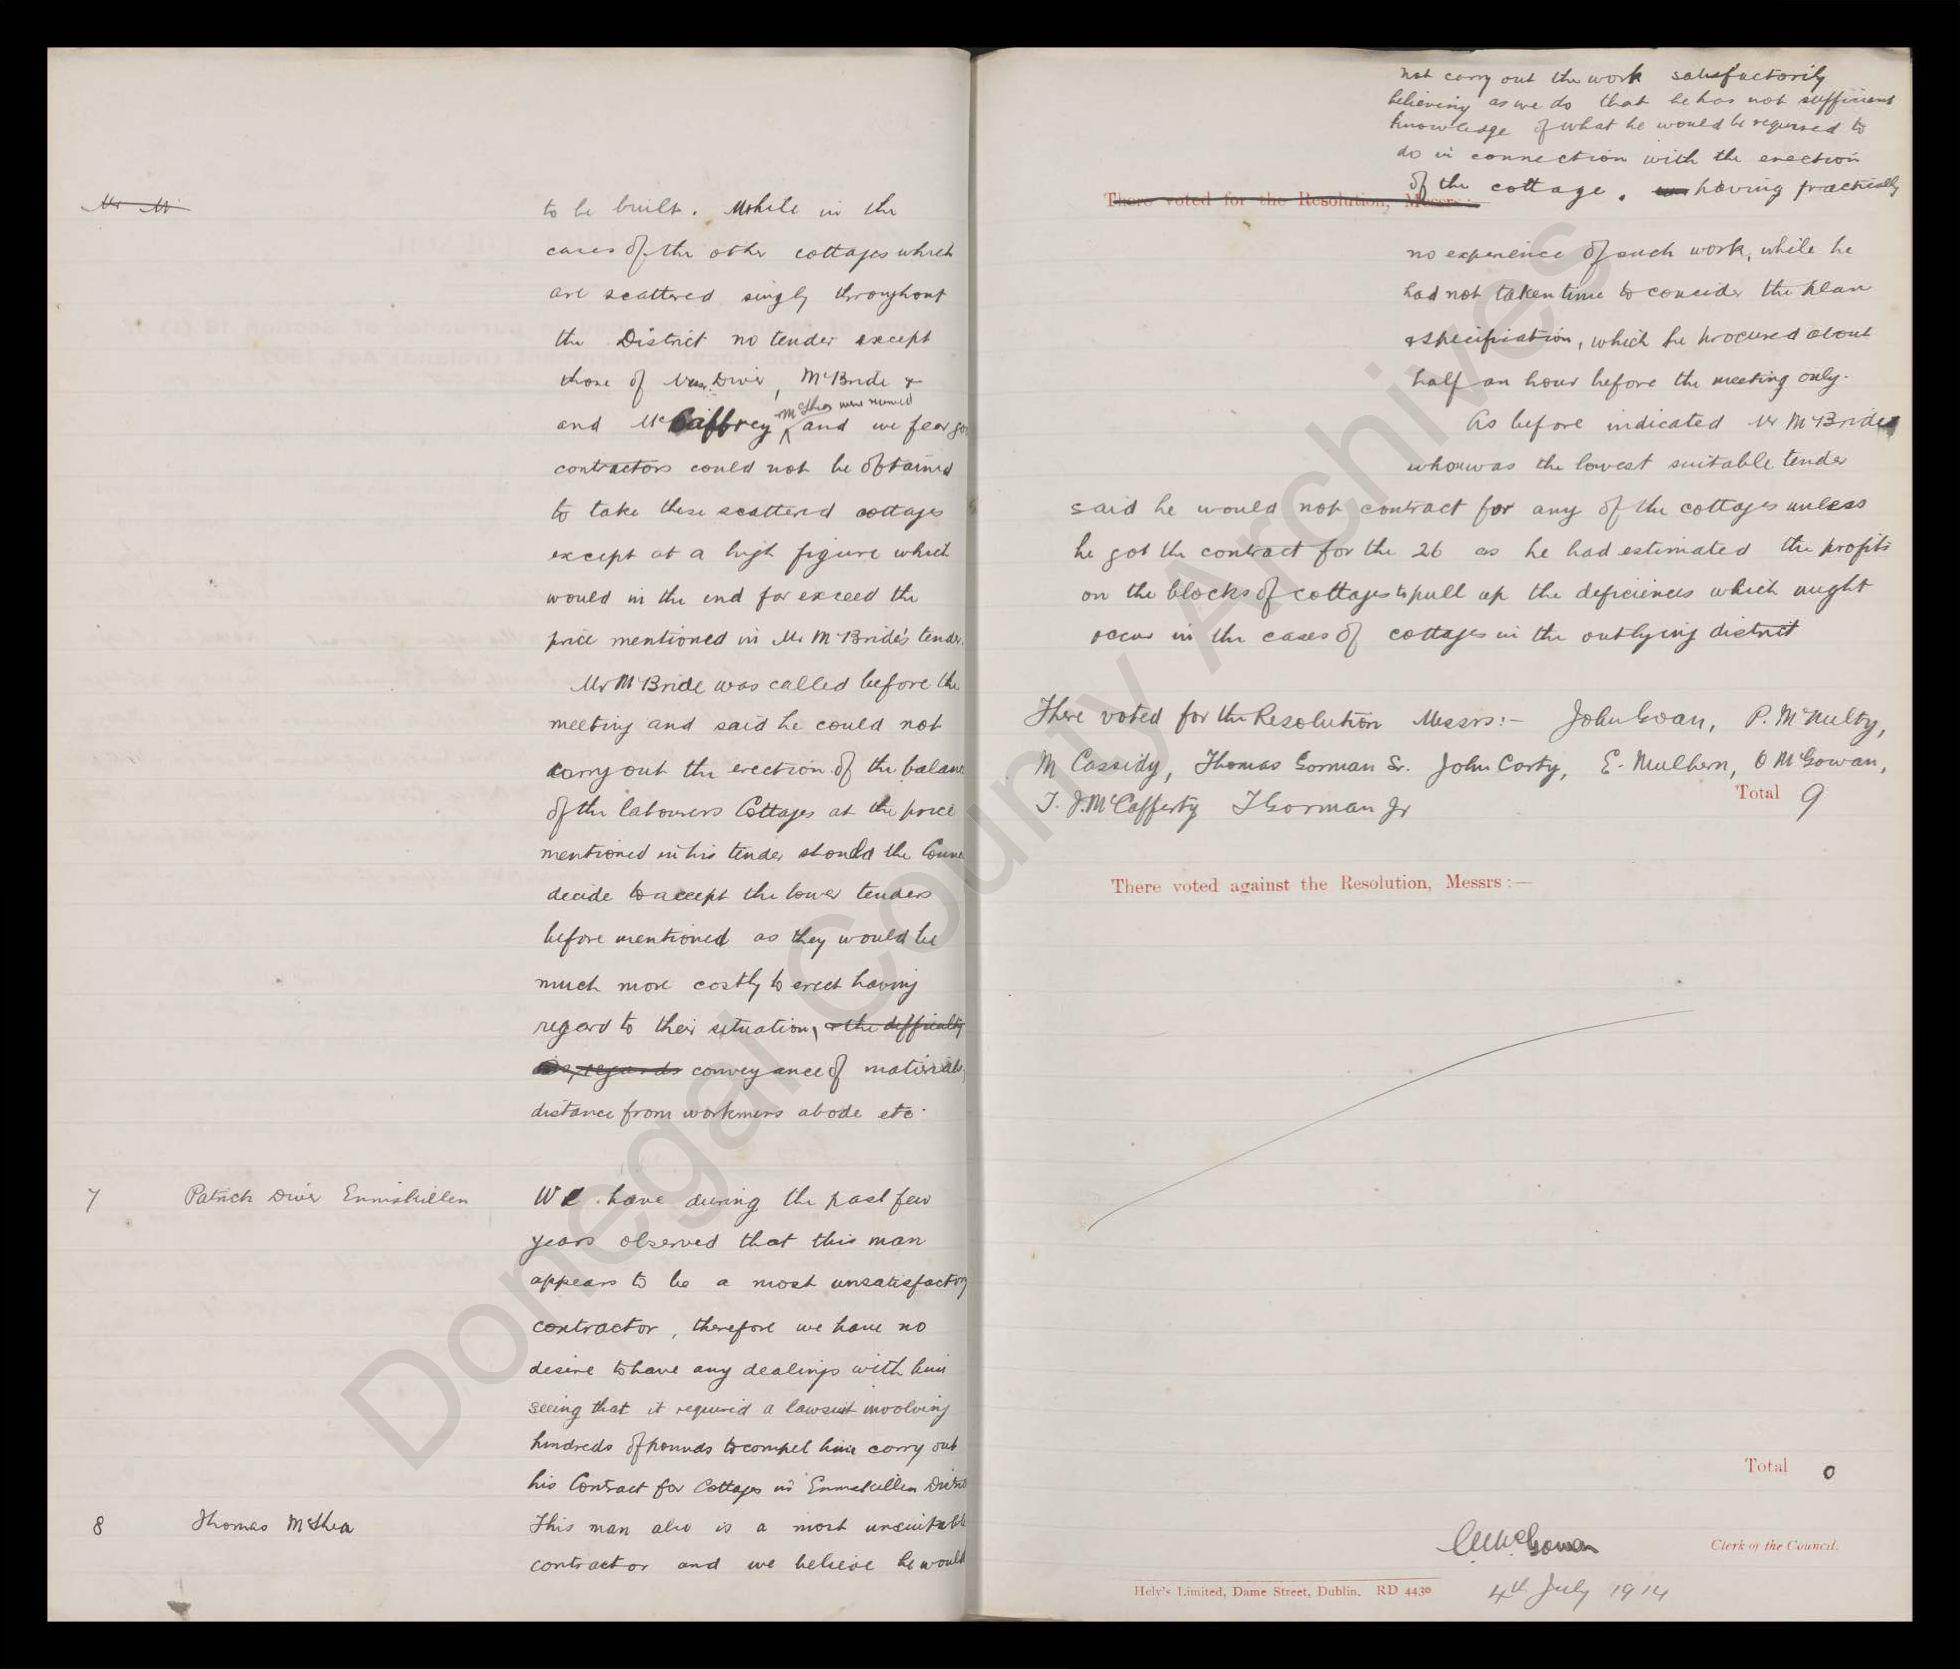 Mr M
to be built. While in the
cases of the other cottages which
are scattered singly throughout
the District no tender except
those of Diver, McBride &
and McCaffrey McShea were named and we fear
contractors could not be obtained
to take these scattered cottages
except at a high figure which
would in the end far exceed the
price mentioned in Mr McBride's tender.
Mr McBride was called before the
meeting and said he could not
carry out the erection of the balance
of the labourers Cottages at the price
mentioned in his tender should the
decide to accept the lower tenders
before mentioned as they would be
much more costly to erect having
regard to their situation, & the difficulty
as regards conveyance of materials,
distance from workmens abode etc.
7 Patrick Diver Enniskillen We have during the past few
years observed that this man
appears to be a most unsatisfactory
contractor, therefore we have no
desire to have any dealings with him
seeing that it required a lawsuit involving
hundreds of pounds to compel him carry out
his Contract for Cottages in Enniskillen
8 Thomas McShea This man also is a most unsuitable
contractor and we believe he would
not carry out the work satisfactorily
believing as we do that he has not sufficient
knowledge of what he would be required to
do in connection with the erection
of the cottage. having practically
There voted for the Resolution, Messrs:—
no experience of such work, while he
had not taken time to consider the plan
& specification, which he procured about
half an hour before the meeting only.
As before indicated Mr McBride
who was the lowest suitable tender
said he would not contract for any of the cottages unless
he got the contract for the 26 as he had estimated the profits
on the blocks of cottages to pull up the deficiences which might
occur in the cases of cottages in the outlying district
There voted for the Resolution Messrs:- John Goan, P. McNulty,
M Cassidy, Thomas Gorman Sr. John Carty, E. Mulhern, O McGowan,
T. J. McCafferty T Gorman Jr
Total 9
There voted against the Resolution, Messrs:—
Total 0
McGowan Clerk of the Council.
Hely's Limited, Dame Street, Dublin. RD 4430
4th July 1914
Donegal County Archives